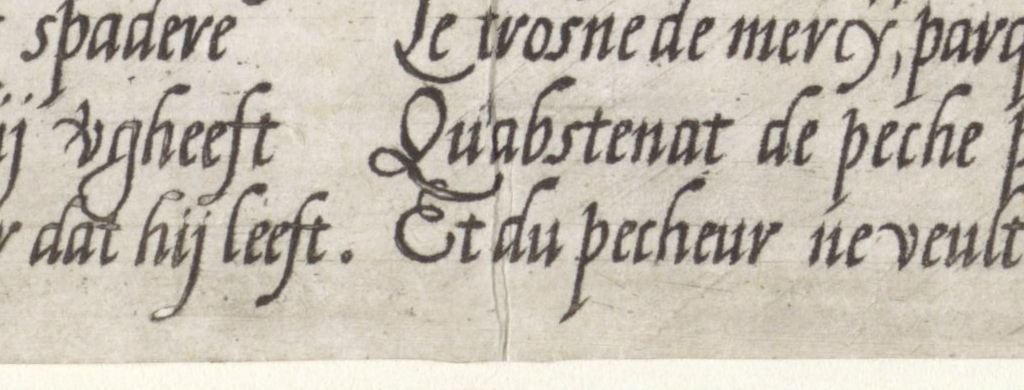 spadere
vgheeft
dat hij leeft.
Le trosne de mercÿ, parq
Quabstenat de peche p
Et du pecheur ne veult